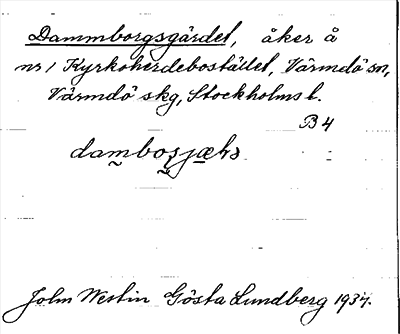 Dammborgsgärdet, åker å
nr 1 Kyrkoherdebostället, Värmdö sn,
Värmdö skg, Stockholms l.
B4
John Westin Gösta Lundberg 1937.